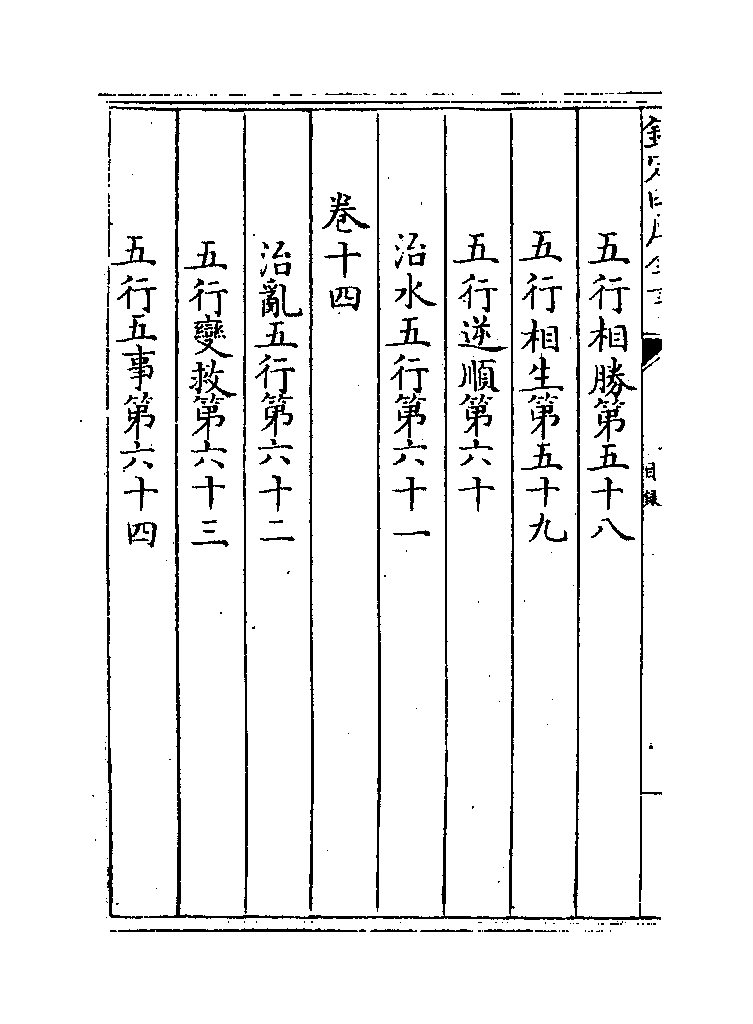 五行相勝第五十八
五行相生第五十九
五行逆順第六十
治水五行第六十一
卷十四
治亂五行第六十二
五行變救第六十三
五行五事第六十四
目録